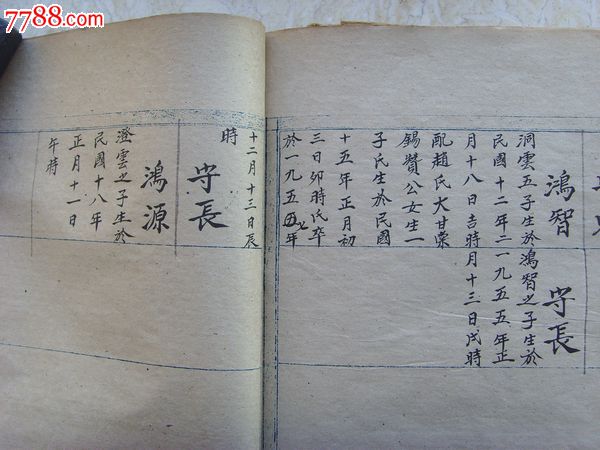 7788.com
鴻智
洞雲五子生於
民國十二年二
月十八日吉時
配趙氏大甘粟
錫贊公女生一
子氏生於民國
十五年正月初
三日卯時氏卒
於一九五五年
七
守長
鴻智之子生於
一九五五年正
月十三日戌時
十二月十三日辰
時
守長
鴻源
澄雲之子生於
民國十八年
正月十一日
午時